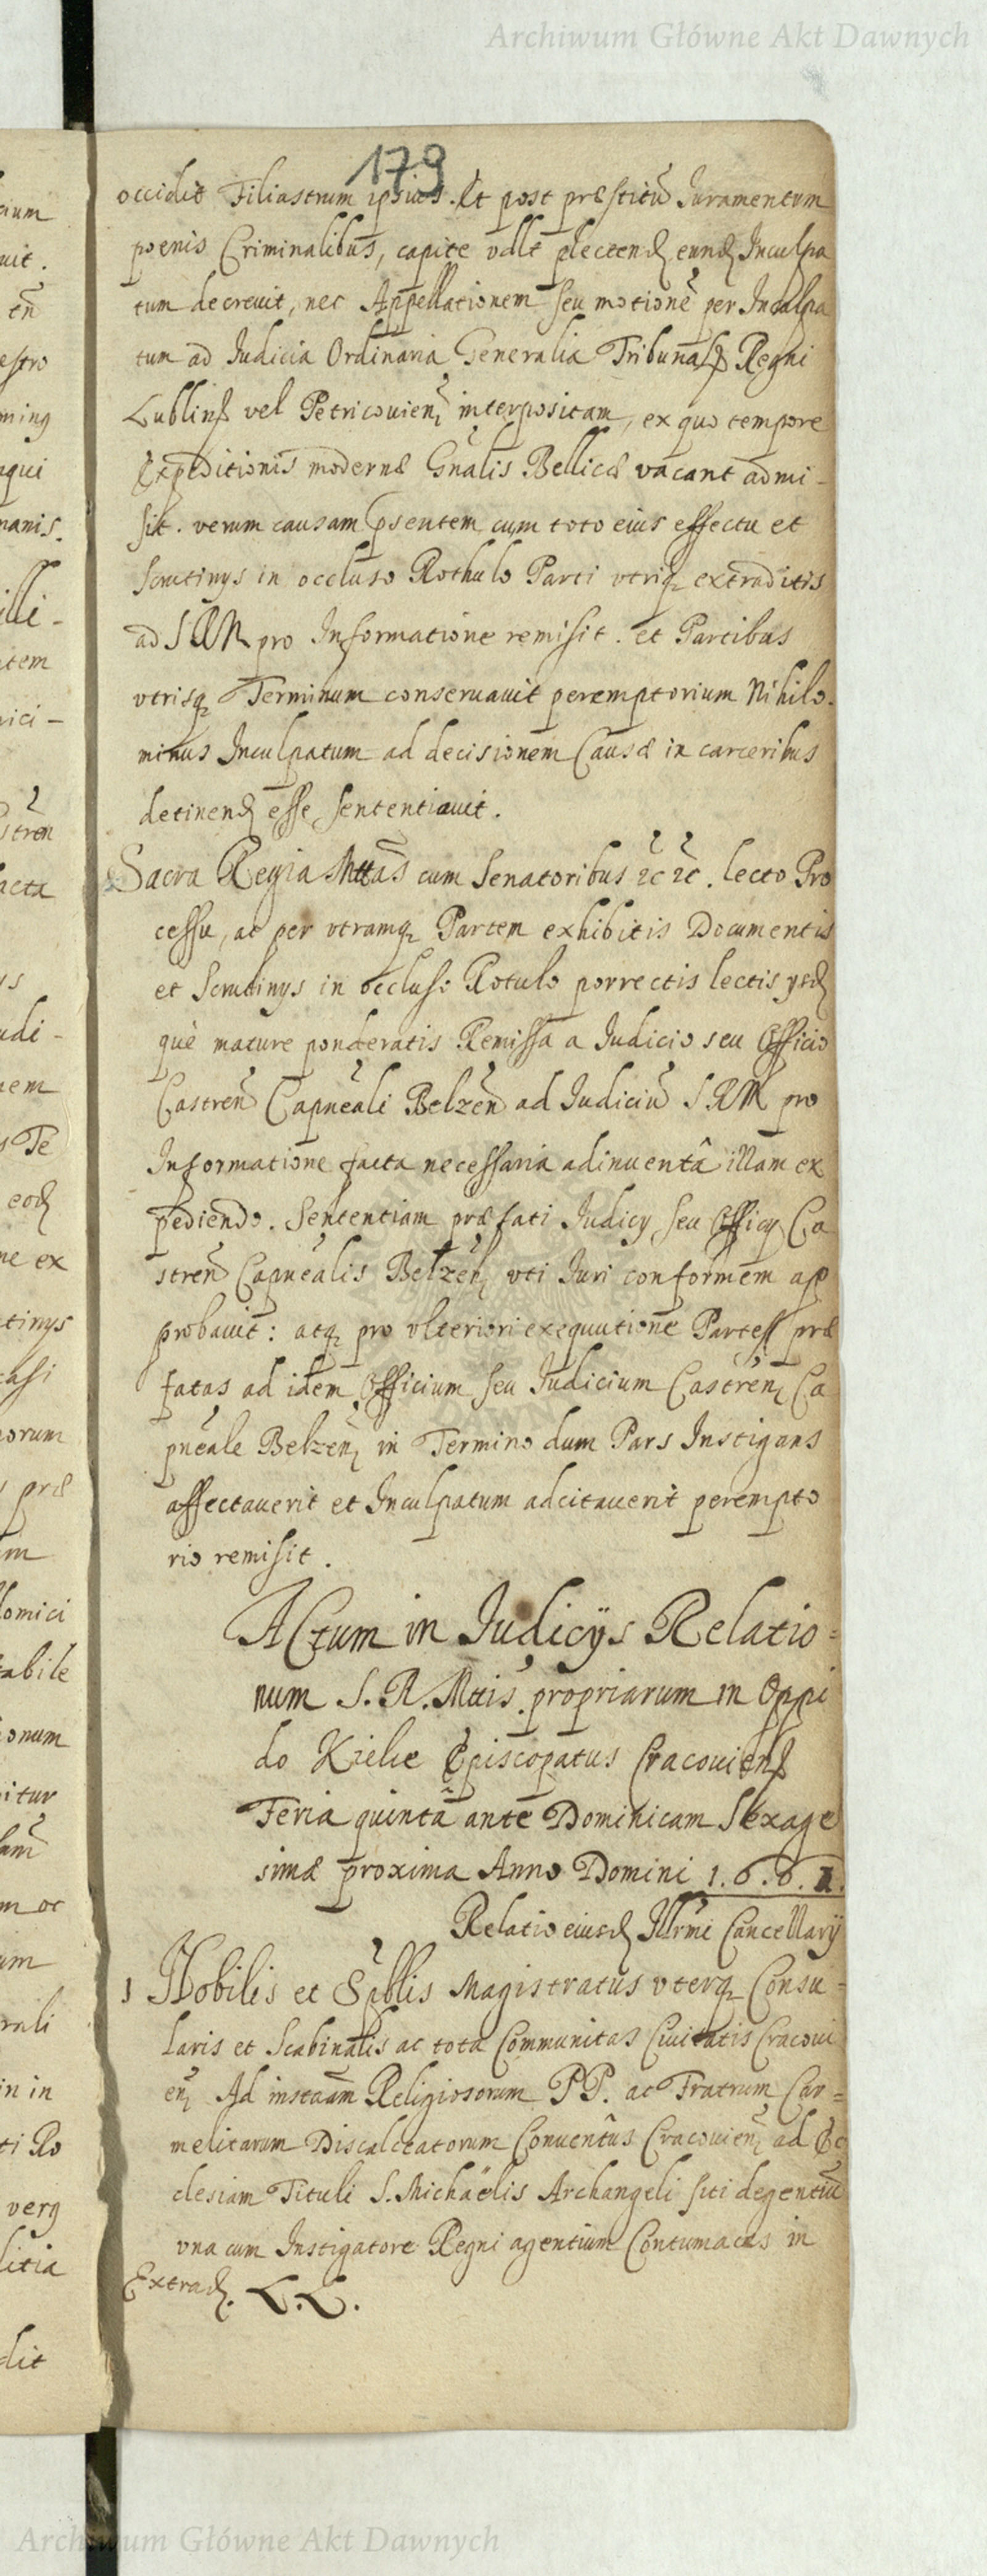 Archiwum Główne Akt Dawnych
179
occidit Filiastrum ipsius. Et post præstitū Juramentum
pœnis Criminalibus, capite vdlt plectend eund Inculpa
tum decreuit, nec Appellationem seu motionē per Inculpa
tum ad Judicia Ordinaria Generalia Tribunal Regni
Lublin vel Petricouien interpositam, ex quo tempore
Expeditionis modernæ Gnalis Bellicæ vacant admi-
sit. verum causam psentem cum toto eius effectu et
scrutinys in occluso Rothulo Parti vtriq extraditis
ad SRM pro Informatione remisit. et Partibus
vtrisq Terminum conseruauit peremptorium Nihilo.
minus Inculpatum ad decisionem Causæ in carceribus
detinend esse sententiauit.
Sacra Regia Mttas cum Senatoribus 2c 2c. lecto Pro
cessu, ac per vtramq Partem exhibitis Documentis
et Scrutinys in occluso Rotulo porrectis lectis ysd
què mature ponderatis Remissa a Judicio seu Officio
Castren Capneali Belzen ad Judiciū SRM pro
Informatione facta necessaria adinuentâ illam ex
pediendo. Sententiam præfati Judicy seu Officy Ca
stren Capnealis Belzen vti Juri conformem ap
probauit: atq pro vlteriori exequutione Partes præ
fatas ad idem Officium seu Judicium Castren Ca
pneale Belzen in Termino dum Pars Instigans
affectauerit et Inculpatum adcitauerit perempto
rio remisit.
ACtum in Judicÿs Relatio=
num S. R. Mttis propriarum in Oppi
do Kielce Episcopatus Cracouien
Feria quinta ante Dominicam Sexage
simæ proxima Anno Domini 1.6.6.1.
Relatio eiusd Illrmi Cancellarÿ
1 Nobilis et Spblis Magistratus vterq Consu=
laris et Scabinalis ac tota Communitas Ciuitatis Cracoui
en Ad instaam Religiosorum PP. ac Fratrum Car=
melitarum Discalceatorum Conuentûs Cracouien ad Ec
clesiam Tituli S. Michaëlis Archangeli siti degentiū
vna cum Instigatore Regni agentium Contumaces in
Extrad. L.L.
Archiwum Główne Akt Dawnych